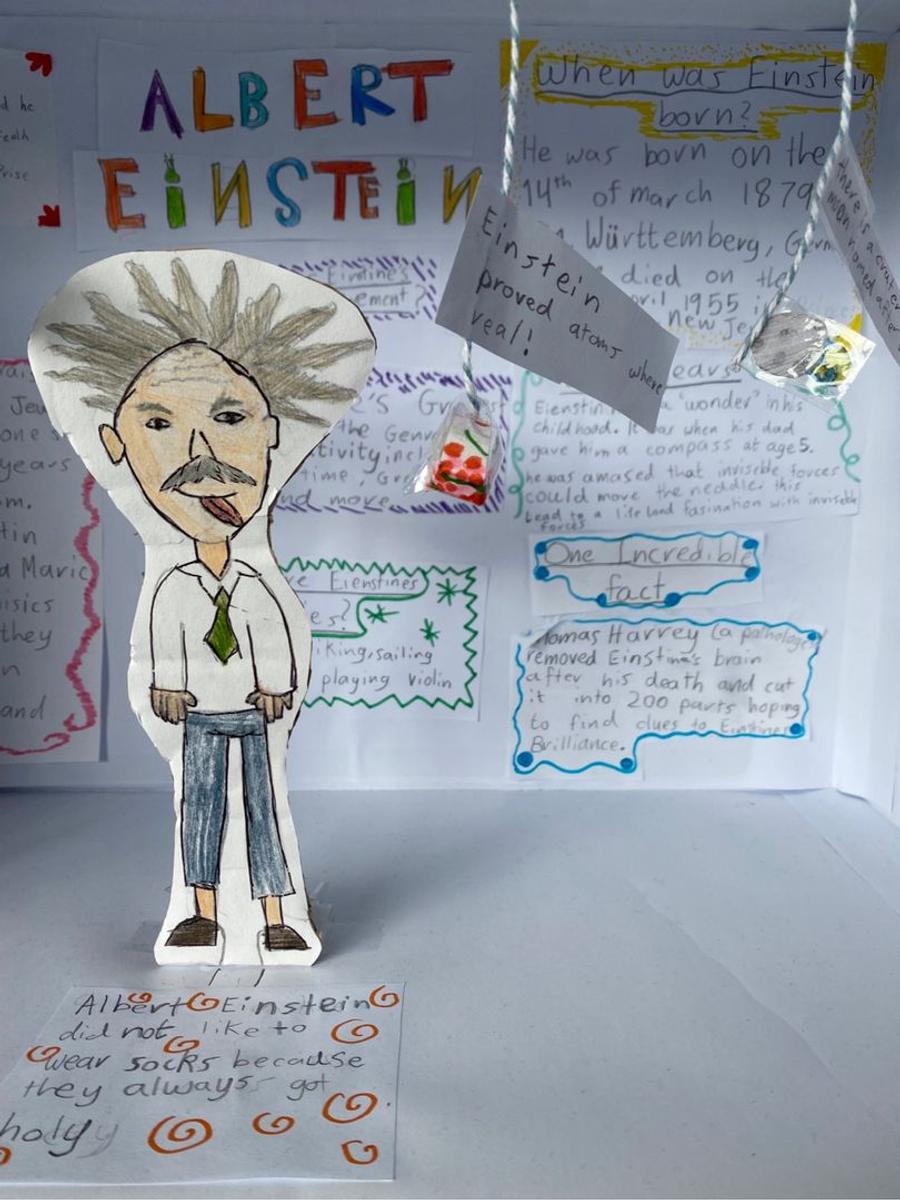 d he
ealh
Prise
ALBERT
EiNSTEiN
When was Einstein
born?
He was born on the
14th of march 1879
Württemberg, Germ
died on the
pril 1955 i
new Je
Einstein
proved atoms where
real!
there is a crater
moon named after
ement?
's Gr
the Gen
tivity incl
time, Gr
nd more.
ears
Eienstin a "wonder" in his
childhood. It was when his dad
gave him a compass at age 5.
he was amased that inviseble forces
could move the neddle. this
Lead to a life Land fasination with inviseble
forces
Jeu
one s
years
m.
tin
a Maric
isics
they
n
and
ve Eienstines
es?
iking, sailing
playing violin
One Incredible
fact
homas Harvey (a pathologe
removed Einstine's brain
after his death and cut
it into 200 parts hoping
to find clues to Einstines
Brilliance.
Albert Einstein
did not like to
wear socks because
they always got
holyy